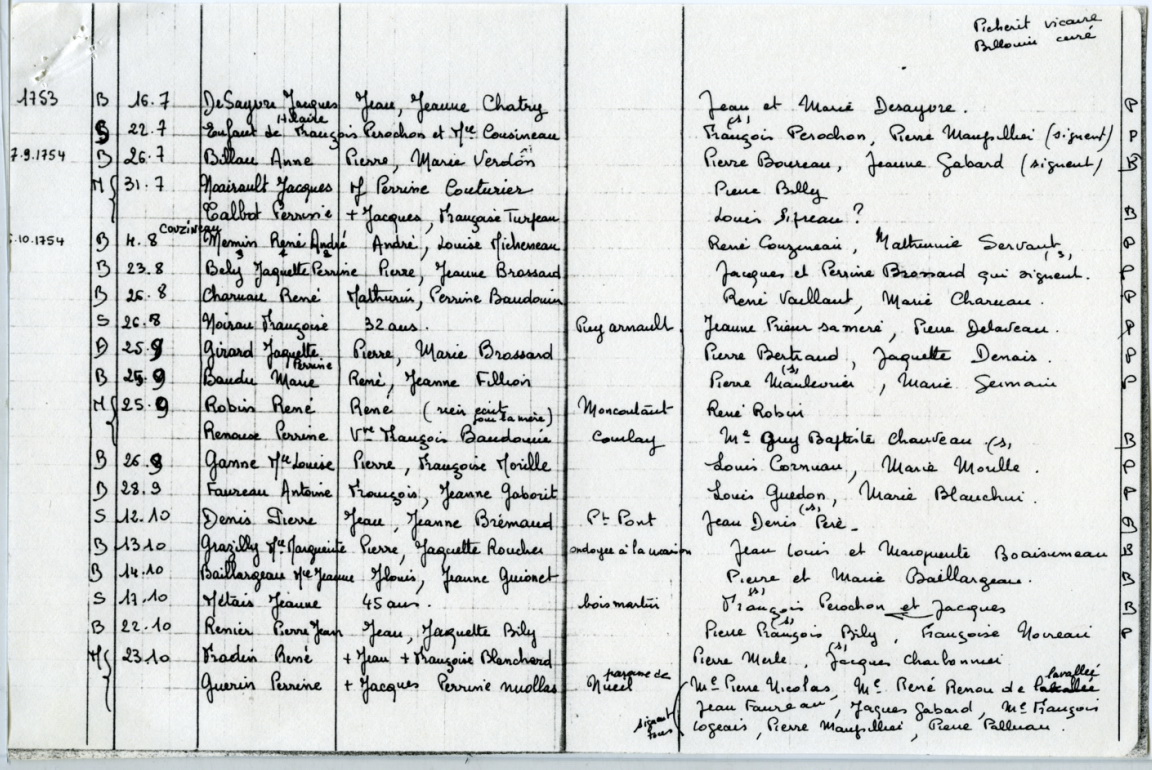 Picherit vicaire
Billouin curé
1753 B 16.7 DeSayvre Jacques Jean, Jeanne Chatry Jean et Marie Desayvre. P
Hilaire (s)
S 22.7 Enfant de François Perochon et Mie Cousineau François Perochon, Pierre Maupillier (signent) P
7.9.1754 B 26.7 Billau Anne Pierre, Marie Verdon Pierre Boureau, Jeanne Gabard (signent) B
M 31.7 Noirault Jacques Perrine Couturier Pierre Billy
Talbot Perrine + Jacques, Françoise Turpeau Louis Sipeau ? B
Couzineau
.10.1754 B 4.8 Memin René André André, Louise Micheneau René Couzineau, Mathurine Servant (s) P
B 23.8 Bely Jaquette Perrine Pierre, Jeanne Brossard Jacques et Perrine Brossard qui signent. P
B 26.8 Charuau René Mathurin, Perrine Baudouin René Vaillant, Marie Charuau. P
S 26.8 Noirau Françoise 32 ans. Puy arnault. Jeanne Prieur sa mère, Pierre Delaveau. P
B 25.9 Girard Jaquette Pierre, Marie Brossard Pierre Bertraud, Jaquette Denais. P
Perrine (s)
B 25.9 Baudu Marie René, Jeanne Fillion Pierre Maulevrier, Marie Germain P
M 25.9 Robin René René (rien écrit pour la mère) Moncoutant René Robin
Renause Perrine Vve François Baudouin Coulay Me Guy Baptiste Chauveau (s) B
B 26.9 Ganne Mie Louise Pierre, Françoise Morille Louis Cornuau, Marie Morille. P
B 28.9 Faureau Antoine François, Jeanne Gaborit Louis Guedon, Marie Blanchin. P
S 12.10 Denis Pierre Jean, Jeanne Brémaud Pt Pont Jean Denis (s) Père B
B 13.10 Grazilly Mie Marguerite Pierre, Jaquette Roucher ondoyée à la maison Jean Louis et Marguerite Boaisumeau B
B 14.10 Baillargeau Mie Jeanne Jlouis, Jeanne Guionet Pierre et Marie Baillargeau. B
S 17.10 Métais Jeanne 45 ans. bois martin François (s) Perochon et Jacques B
B 22.10 Renier Pierre Jean Jean, Jaquette Bily Pierre François (s) Bily, Françoise Noireau P
M 23.10 Fradin René + Jean + Françoise Blanchard Pierre Merle, Jacques (s) Charbonnier
Guerin Perrine + Jacques Perrine nuollas paroisse de Nueil Me Pierre Nicolas, Me René Renou de Lavallée
signent tous Jean Faureau, Jaques Gabard, Me François
Logeais, Pierre Maupillier, Pierre Palluau.